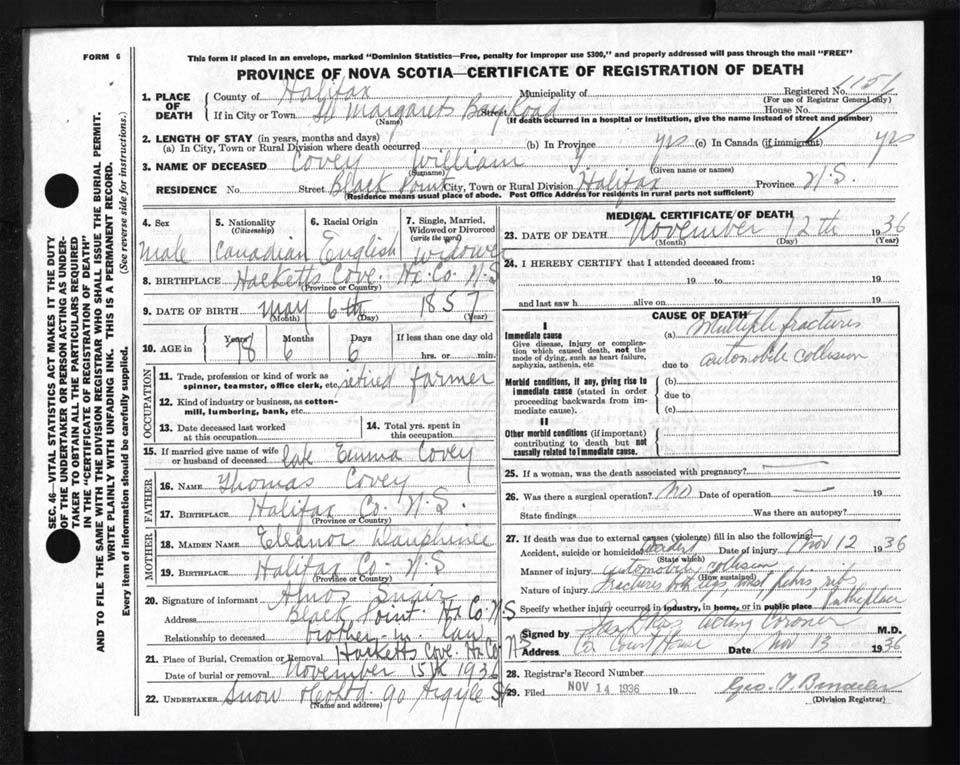 FORM 6
This form if placed in an envelope, marked "Dominion Statistics—Free, penalty for improper use $300," and properly addressed will pass through the mail "FREE"
PROVINCE OF NOVA SCOTIA—CERTIFICATE OF REGISTRATION OF DEATH
SEC. 46—VITAL STATISTICS ACT MAKES IT THE DUTY
OF THE UNDERTAKER OR PERSON ACTING AS UNDER-
TAKER TO OBTAIN ALL THE PARTICULARS REQUIRED
IN THE "CERTIFICATE OF REGISTRATION OF DEATH"
AND TO FILE THE SAME WITH THE DIVISION REGISTRAR WHO SHALL ISSUE THE BURIAL PERMIT.
WRITE PLAINLY WITH UNFADING INK. THIS IS A PERMANENT RECORD.
Every item of information should be carefully supplied. (See reverse side for instructions.)
1. PLACE OF DEATH County of Halifax Municipality of Registered No. 1151
(For use of Registrar General only)
If in City or Town St Margarets Bay Road Street House No.
(Name) (If death occurred in a hospital or institution, give the name instead of street and number)
2. LENGTH OF STAY (in years, months and days)
(a) In City, Town or Rural Division where death occurred (b) In Province yrs (c) In Canada (if immigrant) yrs
3. NAME OF DECEASED Covey William
(Surname) (Given name or names)
RESIDENCE No. Street Black Point City, Town or Rural Division Halifax Province N.S.
(Residence means usual place of abode. Post Office Address for residents in rural parts not sufficient)
4. Sex 5. Nationality (Citizenship) 6. Racial Origin 7. Single, Married, Widowed or Divorced (write the word)
male Canadian English widower
8. BIRTHPLACE Hacketts Cove Hx. Co. N.S
(Province or Country)
9. DATE OF BIRTH May 6th 1857
(Month) (Day) (Year)
10. AGE in Years Months Days If less than one day
6 6 hrs. or min.
OCCUPATION
11. Trade, profession or kind of work as spinner, teamster, office clerk, etc. retired farmer
12. Kind of industry or business, as cotton-mill, lumbering, bank, etc.
13. Date deceased last worked at this occupation
14. Total yrs. spent in this occupation
15. If married give name of wife or husband of deceased late Emma Covey
FATHER
16. NAME Thomas Covey
17. BIRTHPLACE Halifax Co. N.S.
(Province or Country)
MOTHER
18. MAIDEN NAME Eleanor Dauphinee
19. BIRTHPLACE Halifax Co. N.S
(Province or Country)
20. Signature of informant Amos
Address Black Point Hx Co. N.S
Relationship to deceased brother-in-law
21. Place of Burial, Cremation or Removal Hacketts Cove Hx Co N S
Date of burial or removal November 15th 1936
22. UNDERTAKER Snow & Co Ltd. 90 Argyle St
(Name and address)
MEDICAL CERTIFICATE OF DEATH
23. DATE OF DEATH November 12th 1936
(Month) (Day) (Year)
24. I HEREBY CERTIFY that I attended deceased from:
19 to 19
and last saw h alive on 19
CAUSE OF DEATH
I
Immediate cause (a) Multiple fractures
Give disease, injury or complication which caused death, not the mode of dying, such as heart failure, asphyxia, asthenia, etc.
due to automobile collision
Morbid conditions, if any, giving rise to immediate cause (stated in order proceeding backwards from immediate cause).
(b)
due to
(c)
II
Other morbid conditions (if important) contributing to death but not causally related to immediate cause.
25. If a woman, was the death associated with pregnancy? —
26. Was there a surgical operation? No Date of operation — 19
State findings Was there an autopsy?
27. If death was due to external causes (violence) fill in also the following:
Accident, suicide or homicide? Accident Date of injury Nov 12 1936
(State which)
Manner of injury Automobile collision
(How sustained)
Nature of injury Fractures both legs, pelvis, ribs
Specify whether injury occurred in industry, in home, or in public place Public place
Signed by Acting Coroner M.D.
Address Court House Date Nov 13 1936
28. Registrar's Record Number
29. Filed NOV 14 1936 19 Geo.
(Division Registrar)